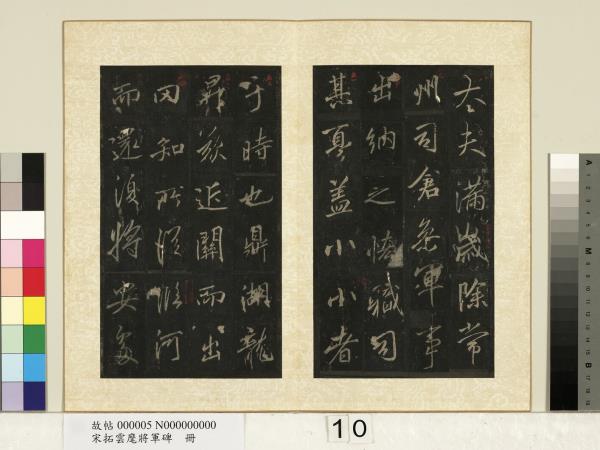 大夫滿歲除常
州司倉參軍事
出納之悋職司
其憂盖小小者
于時也鼎湖龍
昇茲近關而出
罔知所從臨河
而還復將安處
故帖 000005 N000000000
宋拓雲麾將軍碑 冊
10